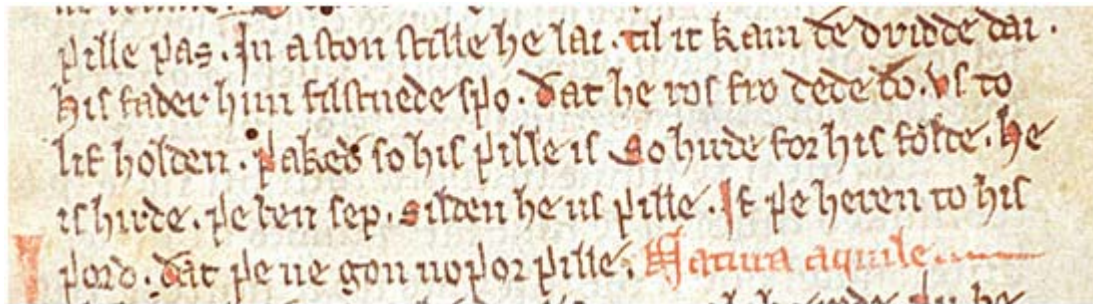 ƿille ƿas. In a ston stille he lai. til it kam ðe dridde dai.
His fader him filstnede sƿo. ðat he ros fro dede ðo. Vs to
lif holden. ƿakeð so his ƿille is So hirde for his folde. He
is hirde. ƿe ben sep. Silden he us ƿille. If ƿe heren to his
ƿord. ðat ƿe ne gon noƿor ƿille. Natura aquile